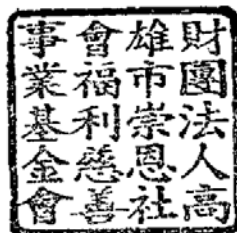 財團法人高
雄市崇恩社
會福利慈善
事業基金會